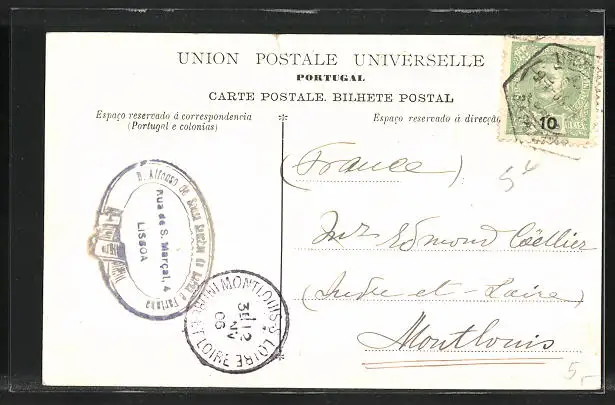 UNION POSTALE UNIVERSELLE
PORTUGAL
CARTE POSTALE. BILHETE POSTAL
Espaço reservado á correspondencia
(Portugal e colonias)
Espaço reservado á direcção
10
(France)
Mr Edmond Cöellier
(Indre-et-Loire)
Montlouis
D. Affonso de
Rua de S. Marçal, 4
LISBOA
MONTLOUIS-S-LOIRE
12
NV
06
LOIRE
5